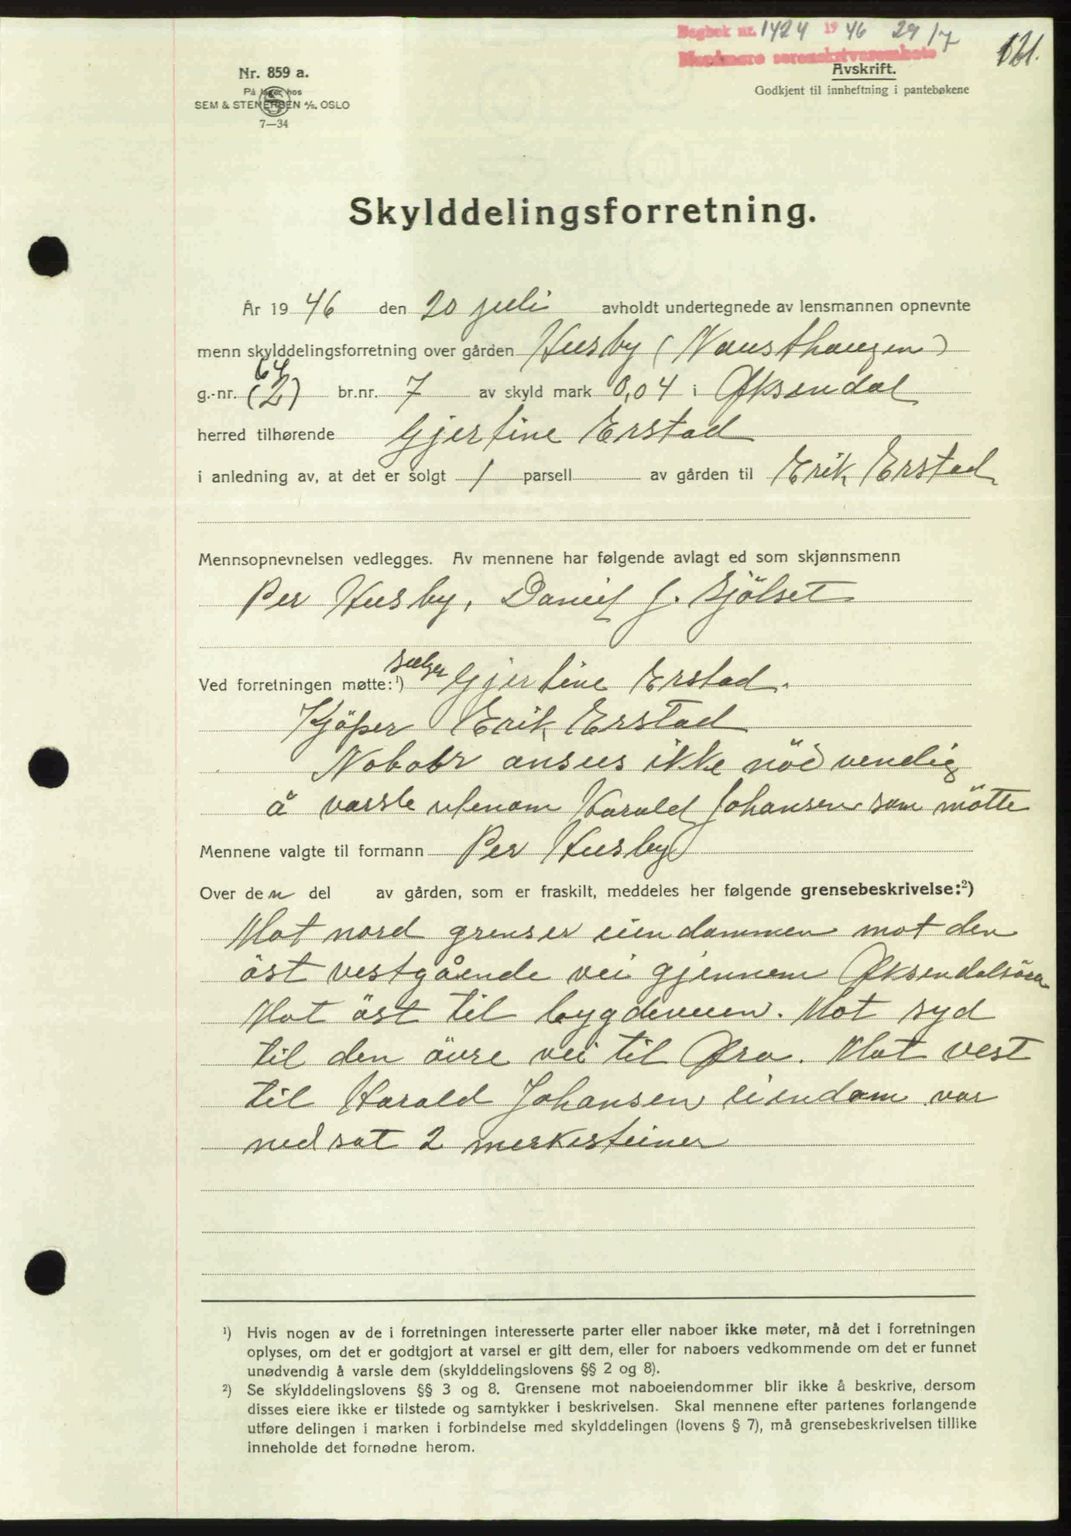 Dagbok nr. 1424 1946 29/7
Nordmøre sorenskriverembete
121.
Nr. 859 a.
På lager hos
SEM & STENERSEN A/S, OSLO
7—34
Avskrift.
Godkjent til innheftning i pantebøkene
Skylddelingsforretning.
År 1946 den 20 juli avholdt undertegnede av lensmannen opnevnte
menn skylddelingsforretning over gården Husby (Nausthaugen)
64
g.-nr. (2) br.nr. 7 av skyld mark 0,04 i Øksendal
herred tilhørende Gjertine Erstad
i anledning av, at det er solgt 1 parsell av gården til Erik Erstad
Mennsopnevnelsen vedlegges. Av mennene har følgende avlagt ed som skjønnsmenn
Per Husby, Daniel J. Sjölset
Ved forretningen møtte:¹) selger Gjertine Erstad.
Kjöper Erik Erstad
Nabober ansees ikke nödvendig
å varsle utenom Harald Johansen som mötte
Mennene valgte til formann Per Husby
Over den del av gården, som er fraskilt, meddeles her følgende grensebeskrivelse:²)
Mot nord grenser eiendommen mot den
öst vestgående vei gjennem Øksendalsöra
Mot öst til bygdeveien. Mot syd
til den övre vei til Øra. Mot vest
til Harald Johansen eiendom var
nedsat 2 merkesteiner
¹) Hvis nogen av de i forretningen interesserte parter eller naboer ikke møter, må det i forretningen
oplyses, om det er godtgjort at varsel er gitt dem, eller for naboers vedkommende om det er funnet
unødvendig å varsle dem (skylddelingslovens §§ 2 og 8).
²) Se skylddelingslovens §§ 3 og 8. Grensene mot naboeiendommer blir ikke å beskrive, dersom
disses eiere ikke er tilstede og samtykker i beskrivelsen. Skal mennene efter partenes forlangende
utføre delingen i marken i forbindelse med skylddelingen (lovens § 7), må grensebeskrivelsen tillike
inneholde det fornødne herom.